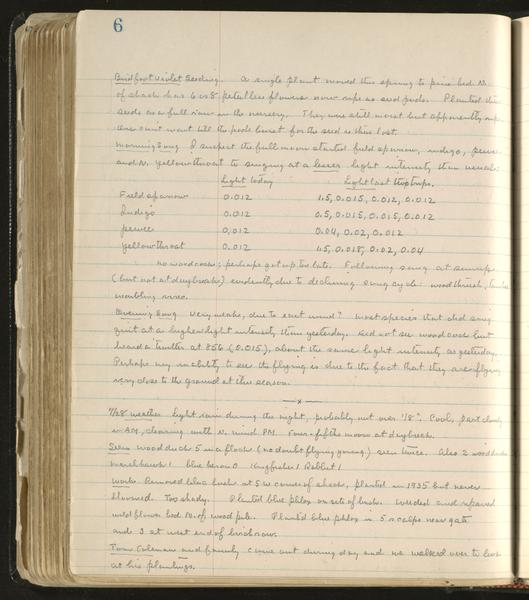 6
Birdfoot Violet Seeding. A single plant moved this spring to pine bed N.
of shack has 6 or 8 petalless flowers now ripe as seed pods. Planted this
seed as a full row in the nursery. They were still moist but apparently ripe.
One can't wait till the pods burst for the seed is then lost.
Morning Song I suspect the full moon started field sparrow, indigo, pewee
and N. yellowthroat to singing at a lesser light intensity than usual:
Light today Light last trips.
Field sparrow 0.012 1.5, 0.015, 0.012, 0.012
Indigo 0.012 0.5, 0.015, 0.015, 0.012
pewee 0.012 0.04, 0.02, 0.012
yellowthroat 0.012 1.5, 0.018, 0.02, 0.04
no woodcock; perhaps got up too late. Following sang at sunup
(but not at daybreak) evidently due to declining song cycle: wood thrush,
warbling vireo.
Evening Song very weak, due to east wind? Most species that did sing
quit at a higher light intensity than yesterday. Did not see woodcock but
heard a twitter at 856 (0.015), about the same light intensity as yesterday.
Perhaps my inability to see the flying is due to the fact that they are flying
very close to the ground at this season.
x
7/28 weather light rain during the night, probably not over 1/8". Cool, part cloudy
in AM, clearing with N. wind PM. Four-fifths moon at daybreak.
Seen wood duck 5 in a flock (no doubt flying young) seen twice. Also 2 wood ducks
marsh hawk 1 blue heron 0 kingfisher 1 Rabbit 1
Work Removed lilac bush at SW corner of shack, planted in 1935 but never
bloomed. Too shady. Planted blue phlox on site of bush. Weeded and repaired
wildflower bed N. of wood pile. Planted blue phlox in 5 scalps near gate
and 3 at west end of birch row.
Tom Coleman and family came out during day and we walked over to look
at his plantings.